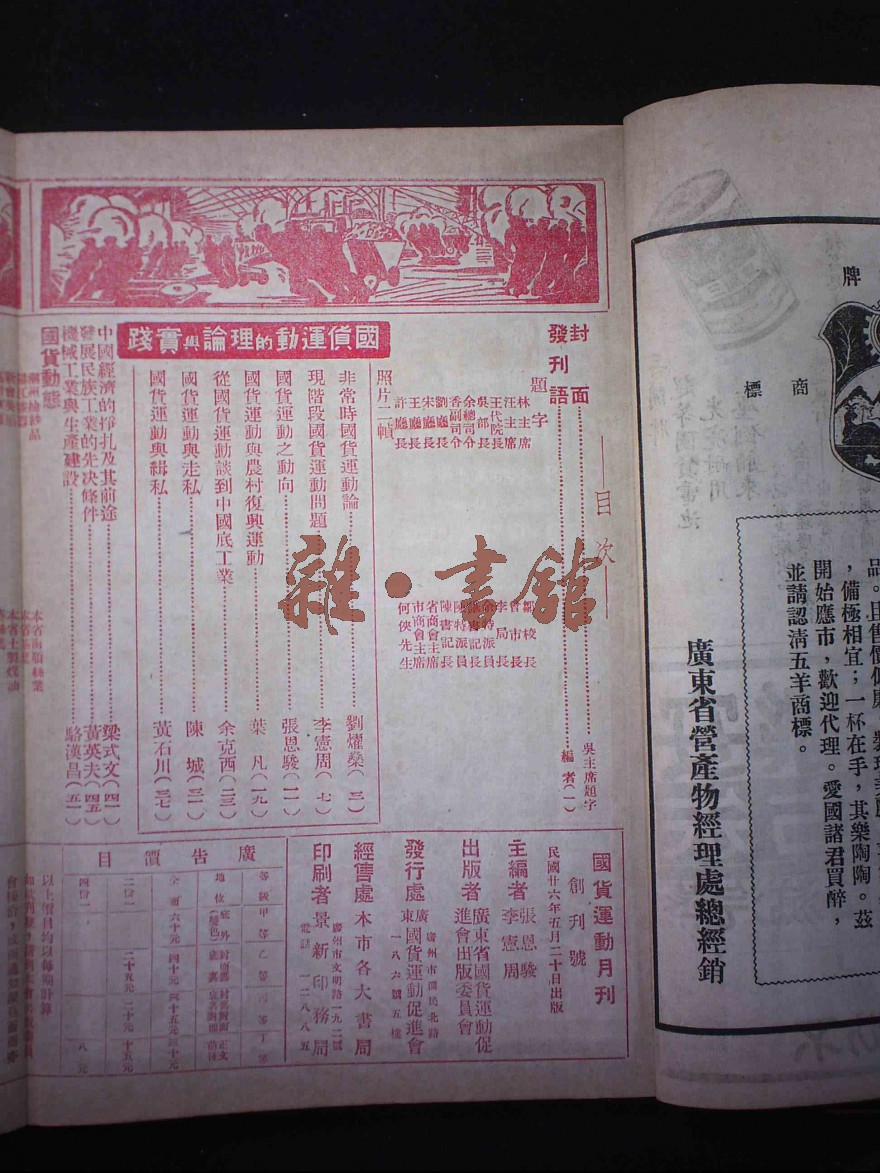 牌
商標
品。且售價低廉
，備極相宜；一杯在手，其樂陶陶。茲
開始應市，歡迎代理。愛國諸君買醉，
並請認清五羊商標。
廣東省營產物經理處總經銷
目次
封面……吳主席題字
發刊語……編者（一）
題字
林主席
汪主席
王代院長
吳部長
余總司令
香副司令
劉廳長
宋廳長
王廳長
許廳長
鄒校長
曾市長
李局長
陳特派員
陳書記長
省商會主席
市商會主席
何俠先生
照片二幀
國貨運動的理論與實踐
非常時國貨運動論……劉燿燊（三）
現階段國貨運動問題……李憲周（七）
國貨運動之動向……張恩駿（一一）
國貨運動與農村復興運動……葉凡（一九）
從國貨運動談到中國底工業……余克西（二三）
國貨運動與走私……陳城（三一）
國貨運動與緝私……黃石川（三七）
中國經濟的掙扎及其前途……梁式文（四一）
發展民族工業的先決條件……黃英夫（四五）
機械工業與生產建設……駱漢昌（五一）
國貨動態
潮州抽紗品
本省土製煤油
雜·書館
國貨運動月刊
創刊號
民國廿六年五月二十日出版
主編者 張恩駿 李憲周
出版者 廣東省國貨運動促進會出版委員會
發行處 廣東國貨運動促進會
廣州市國民北路一八六號五樓
經售處 本市各大書局
印刷者 景新印務局
廣州市文明路一九二號
電話 一二八八五
廣告價目
等級 甲等 乙等 丙等 丁等
地位
全面 六十元 四十元 四十五元 四十元
二份一 二十五元 二十元 十五元
四份一 八元
以上價目均以每期計算